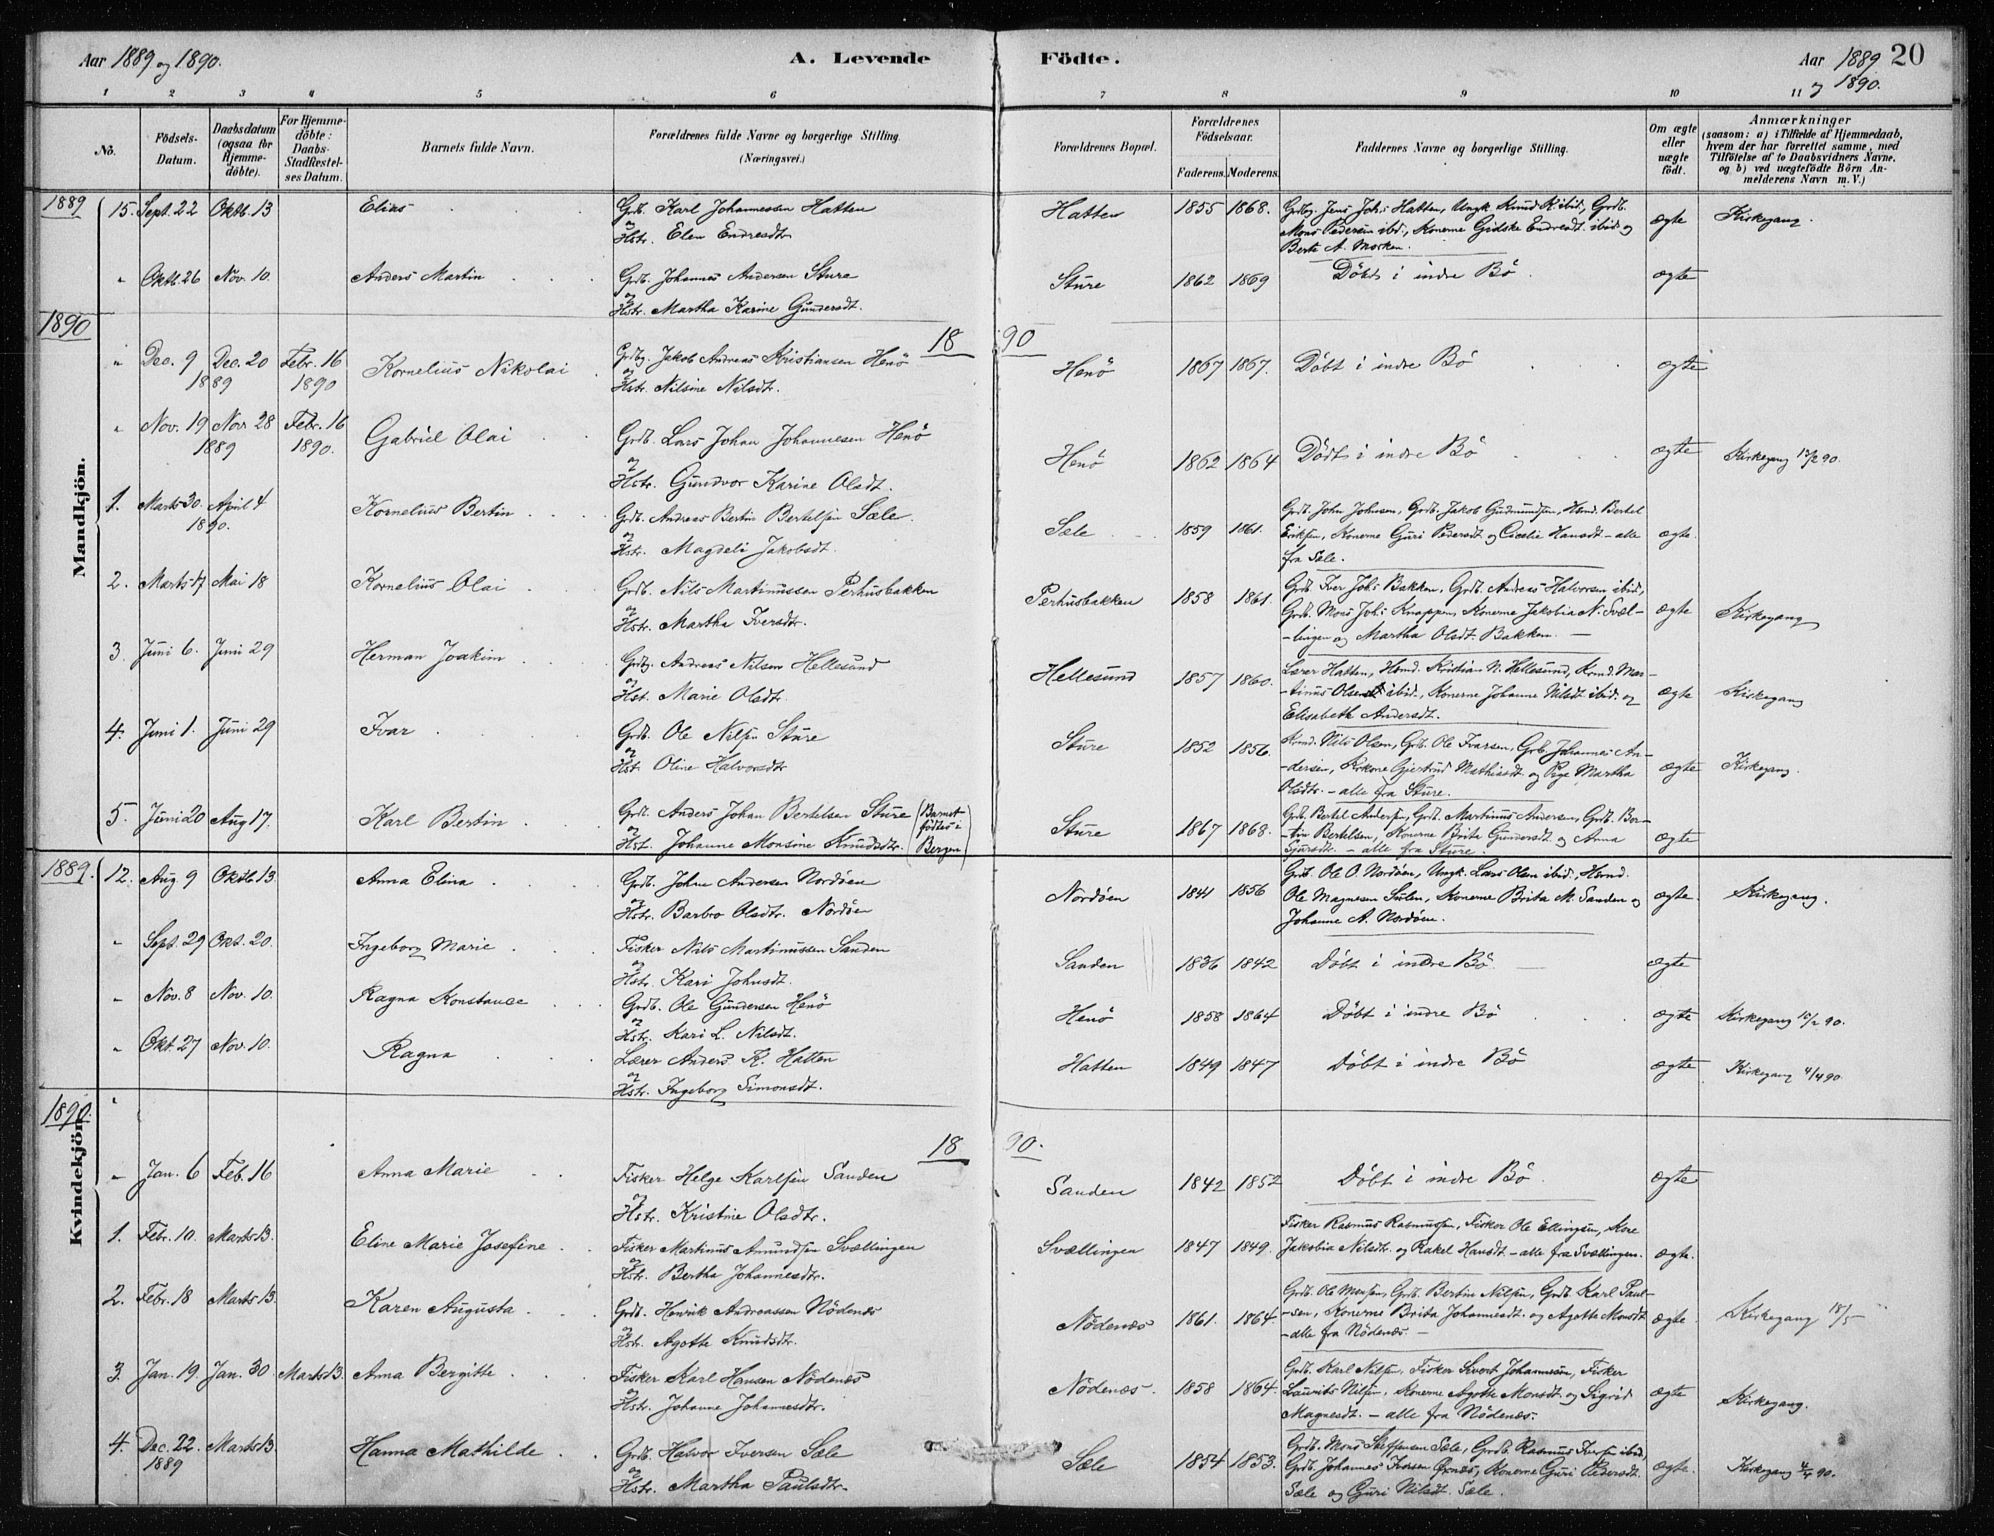 Aar 1889 og 1890.
A. Levende Födte.
Aar 1889 og 1890.
20
1 2 3 4 5 6 7 8 9 10 11
No.
Födsels-Datum.
Daabsdatum (ogsaa for Hjemme-döbte).
For Hjemme-döbte: Daabs-Stadfæstel-ses Datum.
Barnets fulde Navn.
Forældrenes fulde Navne og borgerlige Stilling. (Næringsvei.)
Forældrenes Bopæl.
Forældrenes Födselsaar. Faderens. Moderens.
Faddernes Navne og borgerlige Stilling.
Om ægte eller uægte födt.
Anmærkninger (saasom: a) i Tilfælde af Hjemmedaab, hvem der har forrettet samme, med Tilföielse af to Daabsvidners Navne, og b) ved uægtefödte Börn An-melderens Navn m. V.)
Mandkjön.
1889
15. Sept. 22 Oktb. 13 Elias Grdb. Karl Johannessen Hatten og Hstr. Elen Endresdtr Hatten 1855 1868. Grdbg. Jens Johs Hatten, Ungk Knud K ibid, Grdb. Mons Pedersen ibid., Konerne Gidske Endresdt. ibid og Berte A. Morken. ægte Kirkegang.
" Oktb. 26 Nov. 10. Anders Martin Grdb. Johannes Andersen Sture og Hstr. Martha Karine Gundersdt. Sture 1862 1869 Døbt i indre Bö. ægte
1890
18 90
" Dec. 9 Dec. 20 1889 Febr. 16 1890 Kornelius Nikolai Grdbg. Jakob Andreas Kristiansen Henö og Hstr. Nilsine Nilsdt. Henö 1867 1867. Döbt i indre Bö ægte
" Nov. 19 Nov. 28 1889 Febr. 16 1890. Gabriel Olai Grdb. Lars Johan Johannesen Henö og Hstr. Gundvor Karine Olsdt. Henö 1862 1864 Døbt i indre Bö ægte Kirkegang 90.
1. Marts 30. April 4 1890. Kornelius Bertin Grdb. Andreas Bertin Bertelsen Sæle. og Hstr. Magdeli Jakobsdt. Sæle 1859 1861. Grdb. John Johnsen, Grdb. Jakob Gudmundsen, Hsmd. Bertel Eriksen, Konerne Guri Pedersdt og Cicelie Hansdt - alle fra Sæle. ægte.
2. Marts 17 Mai 18 Kornelius Olai Grdb. Nils Martinussen Perhusbakken og Hstr. Martha Iversdtr. Perhusbakken 1858 1861. Grdb. Iver Johs Bakken, Grdb. Andreas Halvorsen ibid, Grdb. Mons Johs Knappen, Konerne Jakobia N. Svæl-lingen og Martha Olsdt. Bakken. ægte Kirkegang
3. Juni 6. Juni 29 Herman Joakim Grdbg. Andreas Nilsen Hellesund og Hst. Marie Olsdt. Hellesund 1857 1860. Lærer Hatten, Hsmd. Kristian N. Hellesund, Hsmd. Mar-tinus Olsen ibid., Konerne Johanne Nilsdt ibid. og Elisabeth Andersdt. ægte Kirkegang
4. Juni 1. Juni 29 Ivar Grdb. Ole Nilsen Sture og Hst. Oline Halvorsdtr Sture 1852 1856. Nils Olsen, Grb. Ole Ivarsen, Grb. Johannes An-dersen, Gjertrud Mathiasdt og Pige Martha Olsdtr. - alle fra Sture. ægte Kirkegang.
5. Juni 20 Aug 17. Karl Bertin Grdb. Anders Johan Bertelsen Sture og Hst. Johanne Monsine Knudsdtr. (Barnet fødtes i Bergen) Sture 1867 1868. Grb. Bertel Andersen, Grdb. Martinus Andersen, Grdb. Ber-tin Bertelsen, Konerne Brita Gundersdt. og Anna Sjursdtr. - alle fra Sture. ægte
Kvindekjön.
1889.
12. Aug 9 Oktb. 13. Anna Elina Grdb. John Andersen Nordöen og Hstr. Barbro Olsdtr. Nordöen Nordöen 1841 1856 Grdb. Ole O. Nordöen, Ungk. Lars Olsen ibid., Hsmd. Ole Magnesen Sulen, Konerne Brita M. Sanden og Johanne A. Nordöen. ægte. Kirkegang.
" Sept. 29 Okt. 20. Ingeborg Marie Fisker Nils Martinussen Sanden og Hstr. Kari Johnsdt. Sanden 1836 1842 Döbt i indre Bö. ægte
" Nov. 8 Nov. 10. Ragna Konstanse Grdb. Ole Gundersen Henö og Hstr. Kari L. Nilsdt. Henö 1858 1864 Döbt i indre Bö ægte Kirkegang 90.
" Okt. 27 Nov. 10. Ragna Lærer Anders K. Hatten og Hstr. Ingeborg Simonsdt. Hatten 1849 1847 Döbt i indre Bö ægte Kirkegang 4/4 90.
1890.
18 90.
" Jan. 6 Feb. 16 Anna Marie Fisker Helge Karlsen Sanden og Hstr. Kristine Olsdtr. Sanden 1842 1852 Döbt i indre Bö. ægte
1. Febr. 10. Marts 13. Eline Marie Josefine Fisker Martinus Amundsen Svællingen og Hstr. Bertha Johannesdtr. Svællingen 1847 1849. Fisker Rasmus Rasmussen, Fisker Ole Ellingsen, Kone Jakobia Nilsdtr. og Rakel Hansdt - alle fra Svællingen. ægte.
2. Febr. 18 Marts 13. Karen Augusta Grdb. Henrik Andreassen Nödenæs og Hstr. Agothe Knudsdtr. Nödenæs 1861. 1864. Grdb. Ole Monsen, Grdb. Bertin Nilsen, Grdb. Karl Paul-sen, Konerne Brita Johannesdt. og Agothe Monsdt - alle fra Nödenæs - ægte. Kirkegang 18/5
3. Jan. 19. Jan. 30 Marts 13. Anna Bergitte Fisker Karl Hansen Nödenæs og Hstr. Johanne Johannesdtr. Nödenæs. 1858 1864. Grdb. Karl Nilsen, Fisker Sivert Johannesen, Fisker Laurits Nilsen, Konerne Agothe Monsdt. og Sigrid Magnesdt. - alle fra Nödenæs. ægte Kirkegang.
4. Dec. 22. 1889 Marts 13. Hanna Mathilde Grdb. Halvor Iversen Sæle og Hstr. Martha Paulsdtr. Sæle 1854 1853. Grdb. Mons Steffensen Sæle, Grdb. Rasmus Iversen ibid, Grdb. Johannes Ørnæs, Konerne Guri Pedersdt. Sæle og Guri Nilsdt. Sæle. ægte. Kirkegang 90.